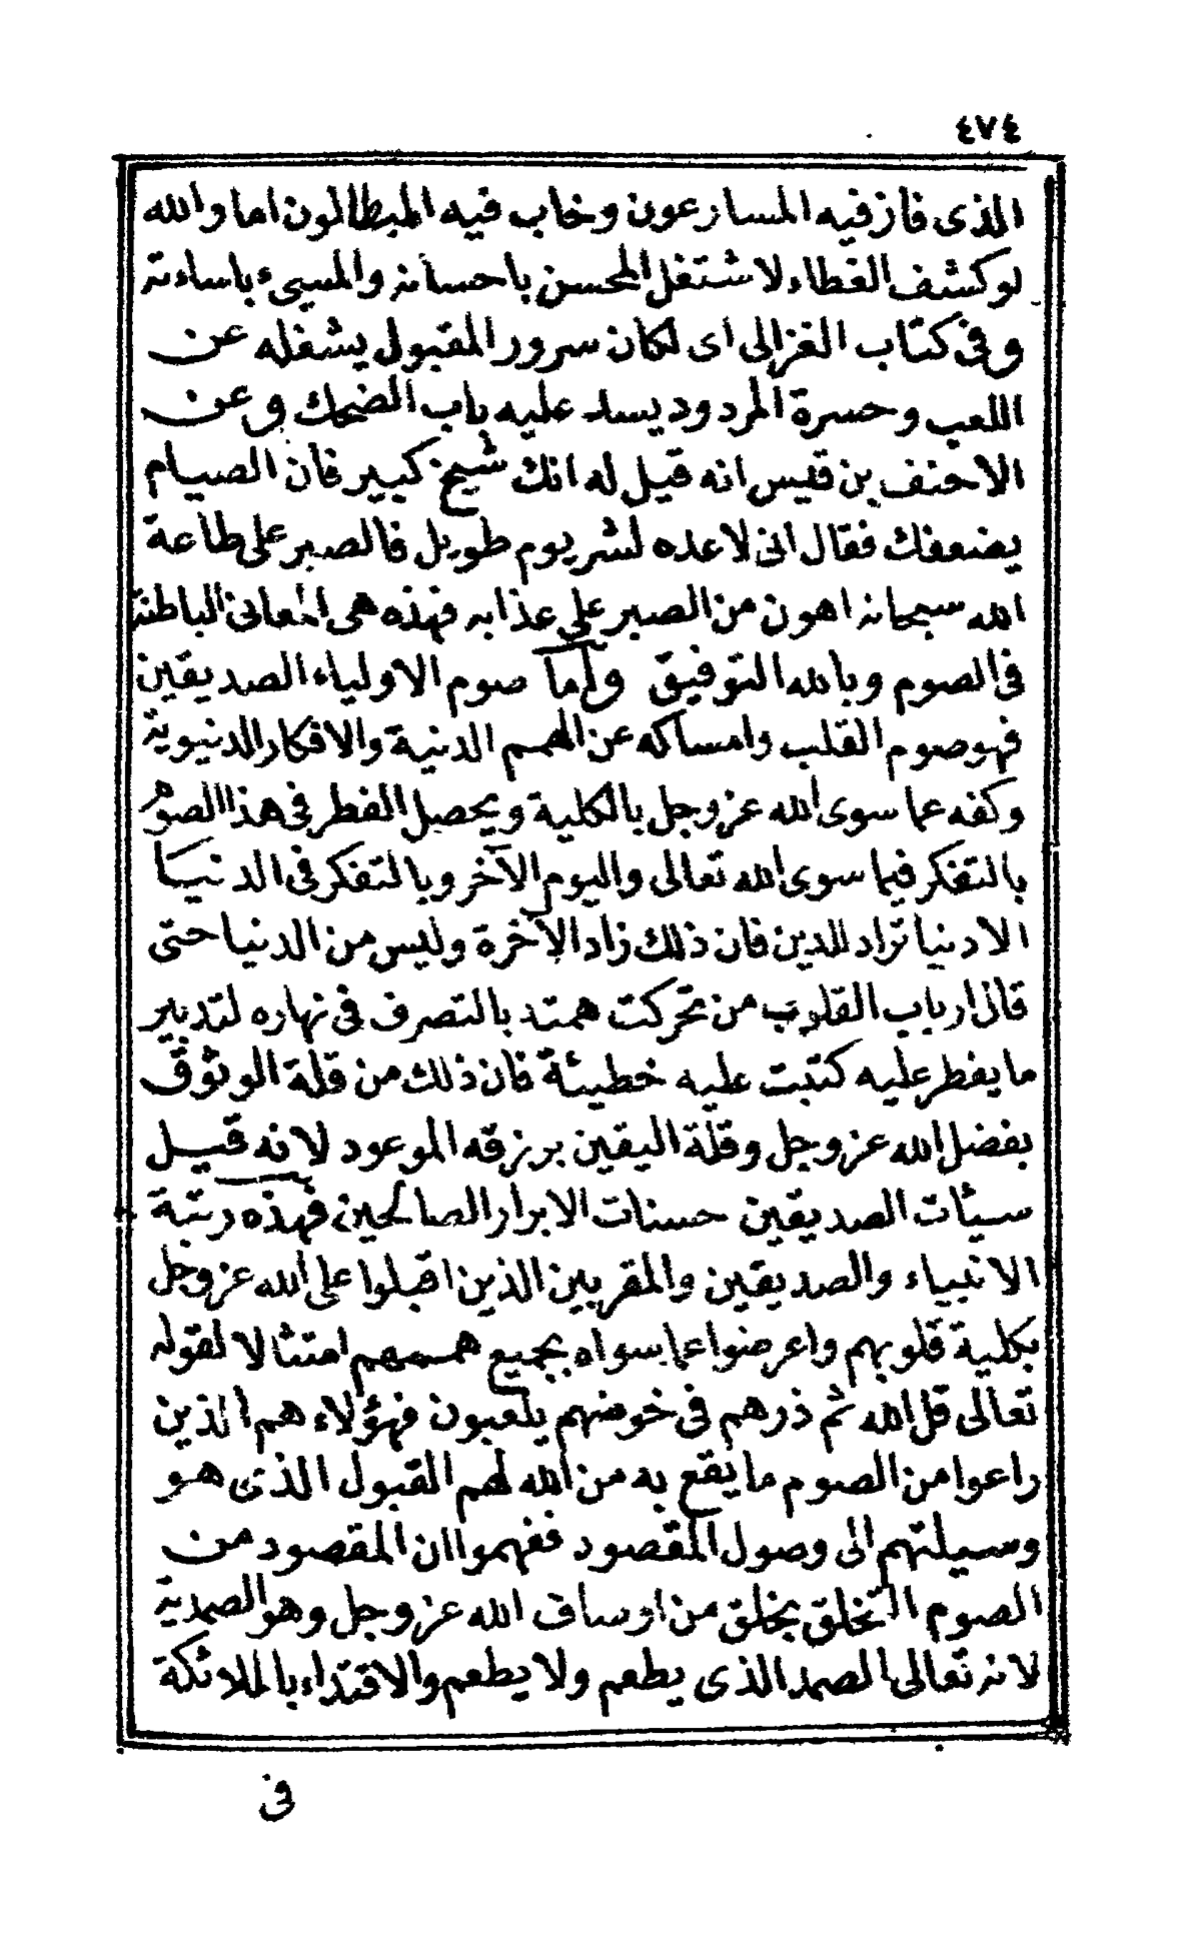 ٤٧٤
الذى فاز فيه المسارعون وخاب فيه المبطالون اما والله
لو كشف الغطاء لاشتغل المحسن باحسانه والمسىء باساءته
وفى كتاب الغزالى اى لكان سرور المقبول يشغله عن
اللعب وحسرة المردود يسد عليه باب الضحك وعن
الاحنف بن قيس انه قيل له انك شيخ كبير فان الصيام
يضعفك فقال انى لاعده لشر يوم طويل فالصبر على طاعة
الله سبحانه اهون من الصبر على عذابه فهذه هى المعانى الباطنة
فى الصوم وبالله التوفيق واما صوم الاولياء الصديقين
فهو صوم القلب وامساكه عن الهمم الدنية والافكار الدنيوية
وكفه عما سوى الله عز وجل بالكلية ويحصل الفطر فى هذا الصوم
بالتفكر فيما سوى الله تعالى واليوم الآخر وبالتفكر فى الدنيا
الا دنيا تراد للدين فان ذلك زاد الآخرة وليس من الدنيا حتى
قال ارباب القلوب من تحركت همته بالتصرف فى نهاره لتدبير
ما يفطر عليه كتبت عليه خطيئة فان ذلك من قلة الوثوق
بفضل الله عز وجل وقلة اليقين برزقه الموعود لانه قيل
سيئات الصديقين حسنات الابرار الصالحين فهذه رتبة
الانبياء والصديقين والمقربين الذين اقبلوا على الله عز وجل
بكلية قلوبهم واعرضوا عما سواه بجميع هممهم امتثالا لقوله
تعالى قل الله ثم ذرهم فى خوضهم يلعبون فهؤلاء هم الذين
راعوا من الصوم ما يقع به من الله لهم القبول الذى هو
وسيلتهم الى وصول المقصود ففهموا ان المقصود من
الصوم التخلق بخلق من اوساف الله عز وجل وهو الصمدية
لانه تعالى الصمد الذى يطعم ولا يطعم والاقتداء بالملائكة
فى